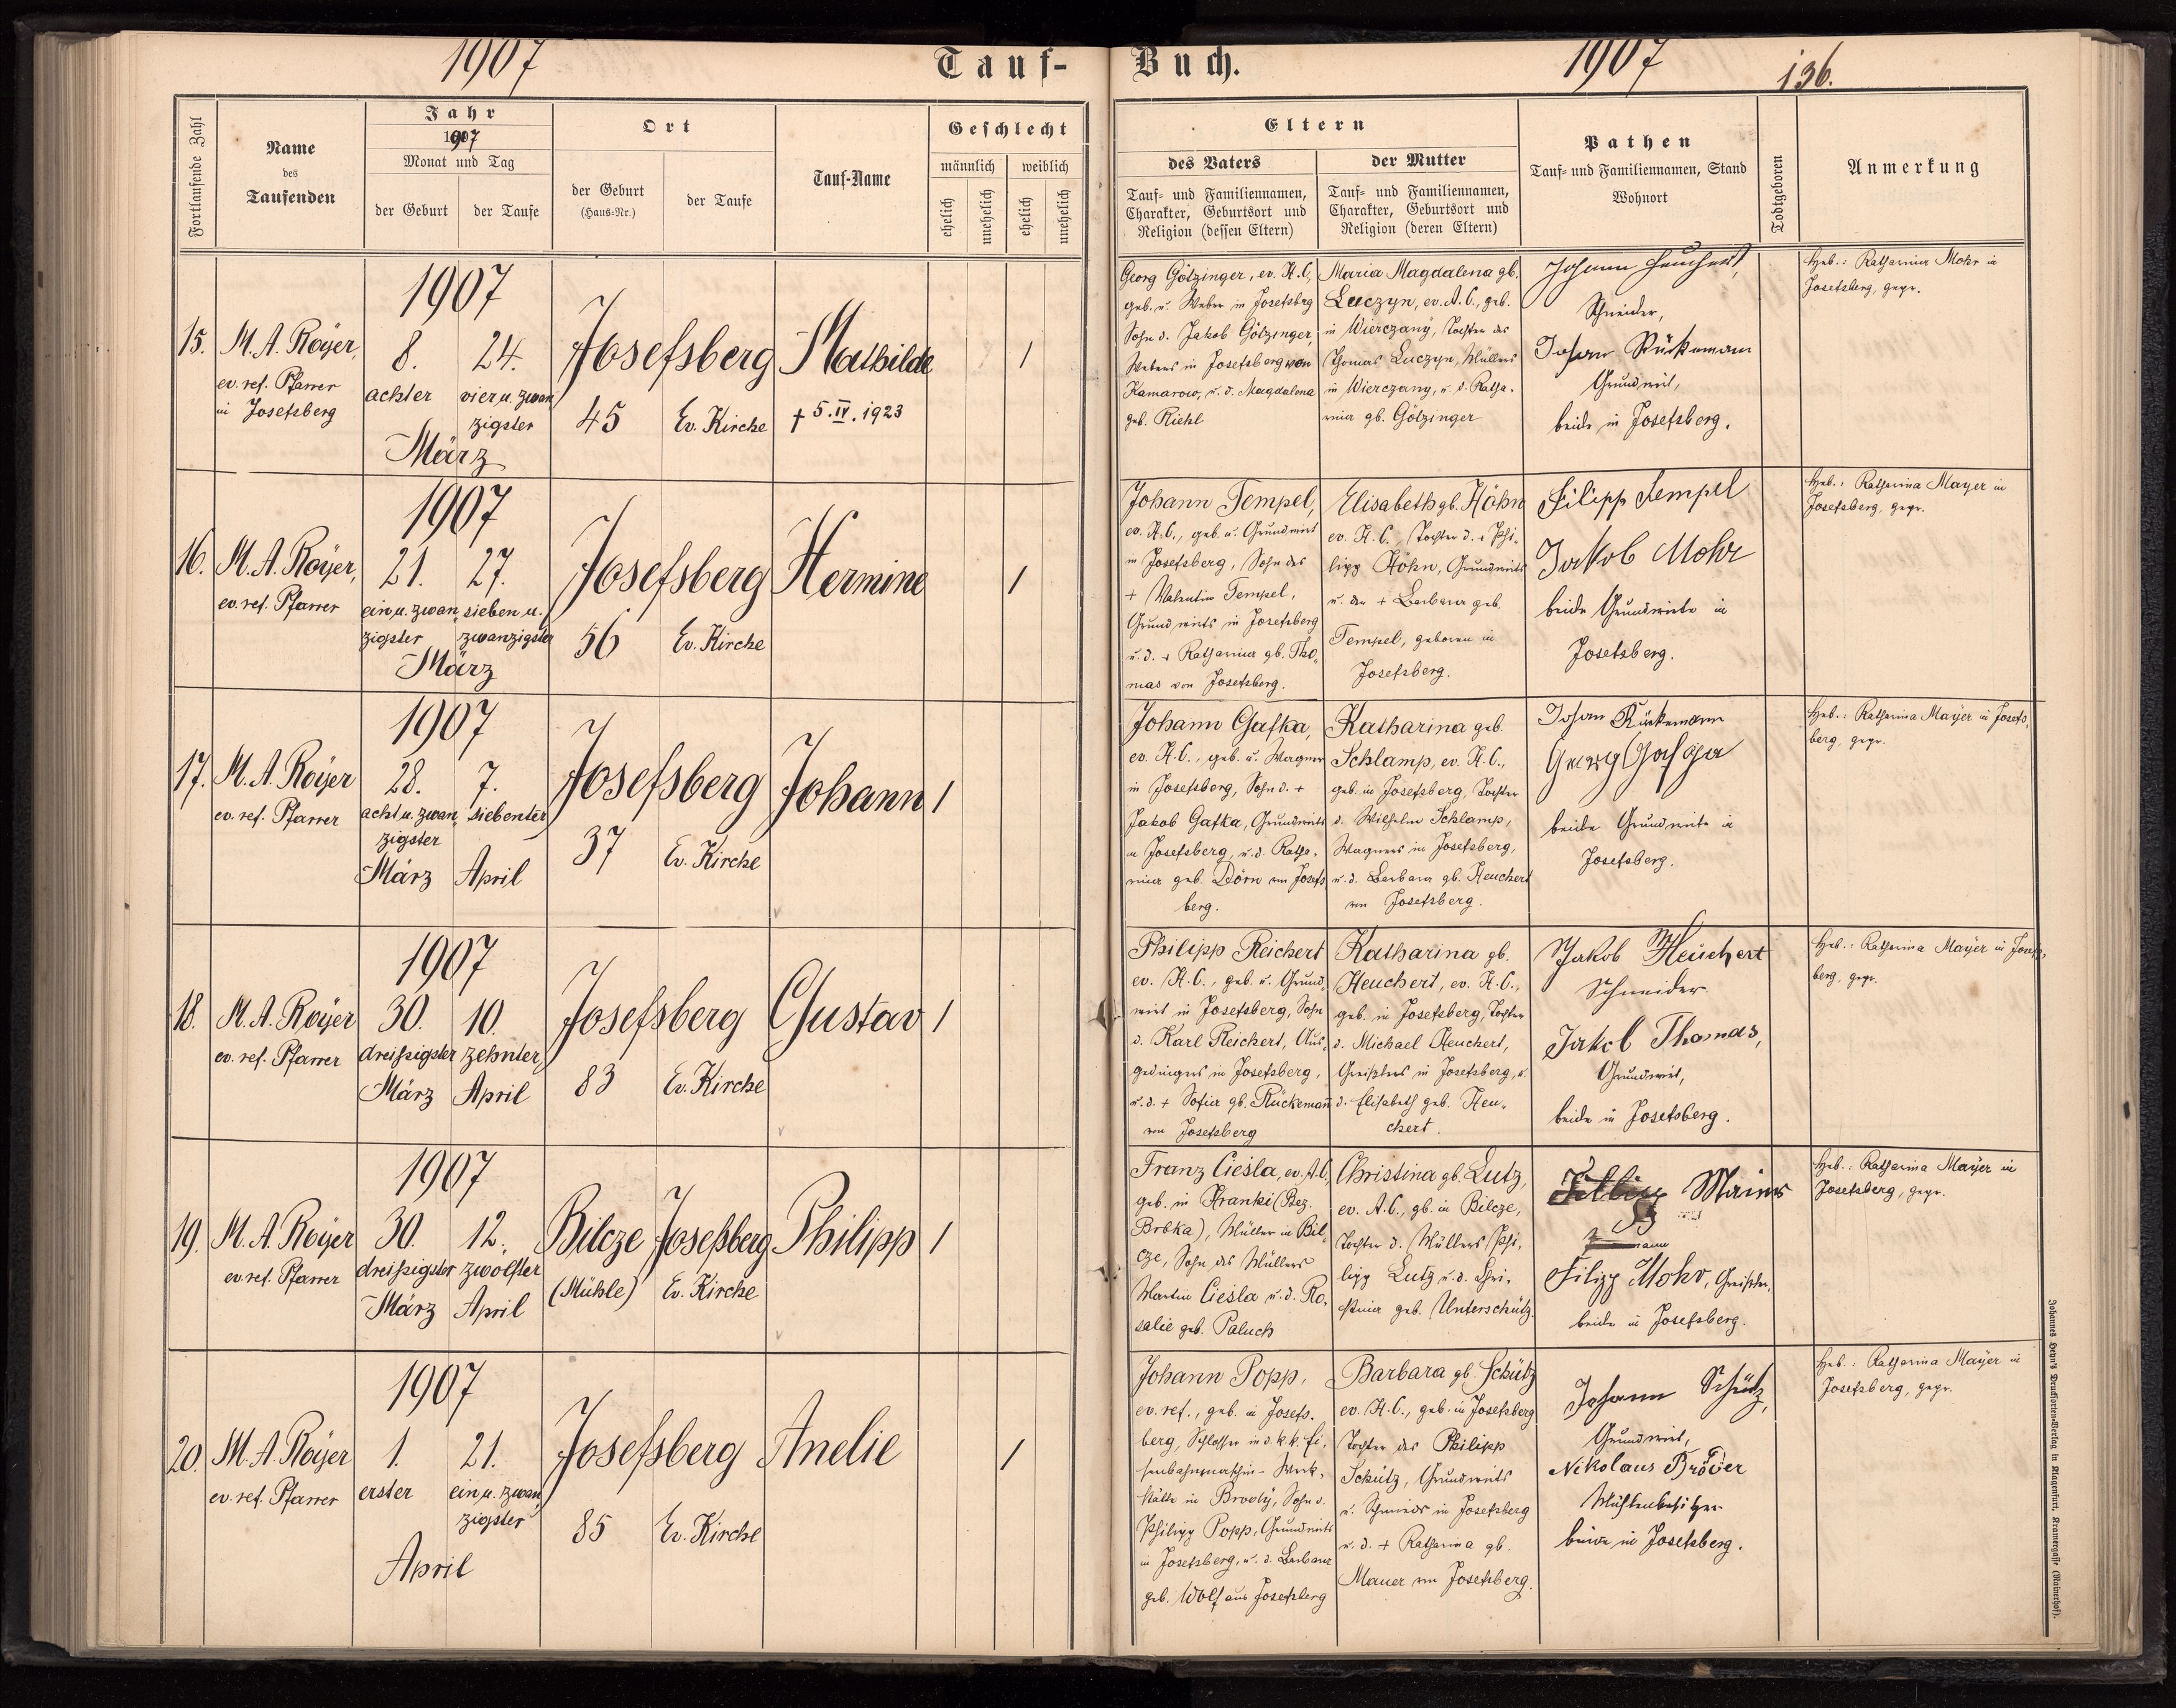 1907
Tauf-
Buch.
1907
136.
Fortlaufende Zahl
Name
des
Taufenden
Jahr
1907
Monat und Tag
der Geburt
der Taufe
Ort
der Geburt
(Haus-Nr.)
der Taufe
Tauf-Name
Geschlecht
männlich
weiblich
ehelich
unehelich
ehelich
unehelich
Eltern
des Vaters
Tauf- und Familiennamen,
Charakter, Geburtsort und
Religion (dessen Eltern)
der Mutter
Tauf- und Familiennamen,
Charakter, Geburtsort und
Religion (deren Eltern)
Pathen
Tauf- und Familiennamen, Stand
Wohnort
Todtgeboren
Anmerkung
15.
M. A. Royer,
ev. ref. Pfarrer
in Josefsberg
1907
8.
24.
achter
vier u. zwan
zigster
März
Josefsberg
45
Ev. Kirche
Mathilde
† 5. IV. 1923
1
Georg Götzinger, ev. H.C.,
geb. u. Weber in Josefsberg
Sohn d. Jakob Götzinger,
Webers in Josefsberg von
Kamarow, u. d. Magdalena
geb. Riehl
Maria Magdalena gb.
Luczyn, ev. A.C., geb.
in Wierczany, Tochter des
Thomas Luczyn, Müllers
in Wierczany, u. d. Katha-
rina gb. Götzinger
Johann Heuchert,
Schneider,
Johan Rückemann
Grundwirt,
beide in Josefsberg.
Heb.: Katharina Mohr in
Josefsberg, gepr.
16.
M. A. Royer,
ev. ref. Pfarrer
1907
21.
27.
ein u. zwan
sieben u.
zigster
zwanzigster
März
Josefsberg
56
Ev. Kirche
Hermine
1
Johann Tempel,
ev. H.C., geb. u. Grundwirt
in Josefsberg, Sohn des
+ Valentin Tempel,
Grundwirts in Josefsberg
u. d. + Katharina gb. Tho-
mas von Josefsberg.
Elisabeth gb. Höhn
ev. H.C., Tochter d. + Phi-
lipp Höhn, Grundwirts
u. der + Barbara geb.
Tempel, geboren in
Josefsberg.
Filipp Tempel
Jakob Mohr
beide Grundwirte in
Josefsberg.
Heb.: Katharina Mayer in
Josefsberg, gepr.
17.
M. A. Royer
ev. ref. Pfarrer
1907
28.
7.
acht u. zwan
siebenter
zigster
März
April
Josefsberg
37
Ev. Kirche
Johann
1
Johann Gafka,
ev. H.C., geb. u. Wagner
in Josefsberg, Sohn d. +
Jakob Gafka, Grundwirts
in Josefsberg, u. d. Katha-
rina geb. Dörn von Josefs
berg.
Katharina geb.
Schlamp, ev. H.C.,
geb. in Josefsberg, Tochter
d. Wilhelm Schlamp,
Wagners in Josefsberg,
u. d. Barbara gb. Heuchert
von Josefsberg.
Johan Rückemann
Georg Gafga
beide Grundwirte in
Josefsberg.
Heb.: Katharina Mayer in Josefs-
berg, gepr.
18.
M. A. Royer
ev. ref. Pfarrer
1907
30.
10.
dreißigster
zehnter
März
April
Josefsberg
83
Ev. Kirche
Gustav
1
Philipp Reichert
ev. H.C., geb. u. Grund-
wirt in Josefsberg, Sohn
d. Karl Reichert, Aus-
gedingers in Josefsberg,
u. d. + Sofia gb. Rückemann
von Josefsberg
Katharina gb.
Heuchert, ev. H.C.,
geb. in Josefsberg, Tochter
d. Michael Heuchert,
Greißlers in Josefsberg, u.
d. Elisabeth geb. Heu-
chert.
Jakob Heuchert
Schneider
Jakob Thomas,
Grundwirt,
beide in Josefsberg.
Heb.: Katharina Mayer in Josefs-
berg, gepr.
19.
M. A. Royer
ev. ref. Pfarrer
1907
30.
12.
dreißigster
zwölfter
März
April
Bilcze
(Mühle)
Josefsberg
Ev. Kirche
Philipp
1
Franz Cieśla, ev. A.C.,
geb. in Hranki (Bez.
Bóbrka), Müller in Bil-
cze, Sohn des Müllers
Martin Cieśla u. d. Ro-
salie geb. Paluch
Christina gb. Lutz,
ev. A.C., gb. in Bilcze,
Tochter d. Müllers Phi-
lipp Lutz u. d. Chri-
stina geb. Unterschütz.
Filipp Mohr, Greißler,
beide in Josefsberg.
Heb.: Katharina Mayer in
Josefsberg, gepr.
20.
M. A. Royer
ev. ref. Pfarrer
1907
1.
21.
erster
ein u. zwan
zigster
April
Josefsberg
85
Ev. Kirche
Amelie
1
Johann Popp,
ev. ref., geb. in Josefs-
berg, Schlosser in d. k. k. Ei-
senbahnmaschin- Werk-
stätte in Brody, Sohn d.
Philipp Popp, Grundwirts
in Josefsberg, u. d. Barbara
geb. Wolf aus Josefsberg
Barbara gb. Schütz
ev. H.C., geb. in Josefsberg
Tochter des Philipp
Schütz, Grundwirts
u. Schmieds in Josefsberg
u. d. + Katharina gb.
Mauer von Josefsberg.
Johann Schütz,
Grundwirt,
Nikolaus Bröder
Mühlenbesitzer
beide in Josefsberg.
Heb.: Katharina Mayer in
Josefsberg, gepr.
Johannes Heyn's Drucksorten-Verlag in Klagenfurt, Kramergasse (Rainerhof).